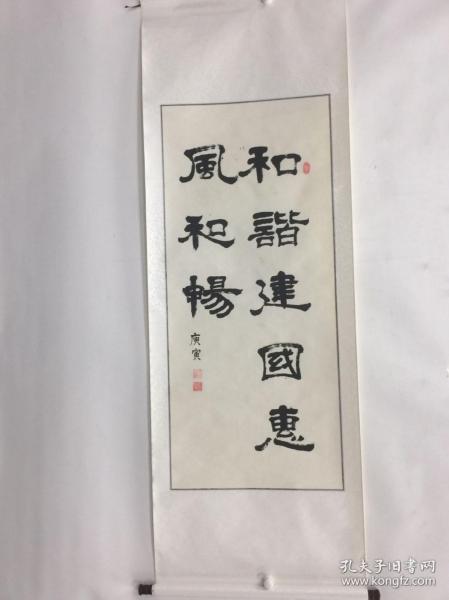 和諧建國惠
風和暢
庚寅
孔夫子旧书网
www.kongfz.com